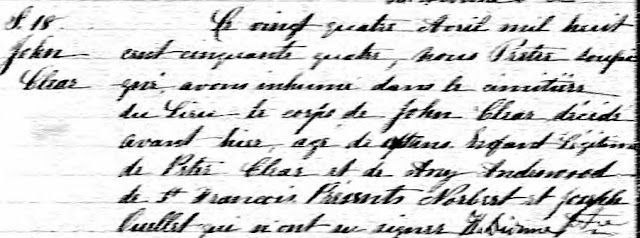 S. 18
John
Clear
Le vingt quatre Avril mil huit
cent cinquante quatre, nous Prêtre soussi
gné, avons inhumé dans le cimitière
du Lieu le corps de John Clear décédé
avant hier, agé de ans Enfant Légitime
de Peter Clear et de Any Anderwood
de St Francois Présents Norbert et Joseph
Ouellet qui n'ont su signer N. Dionne Ptre